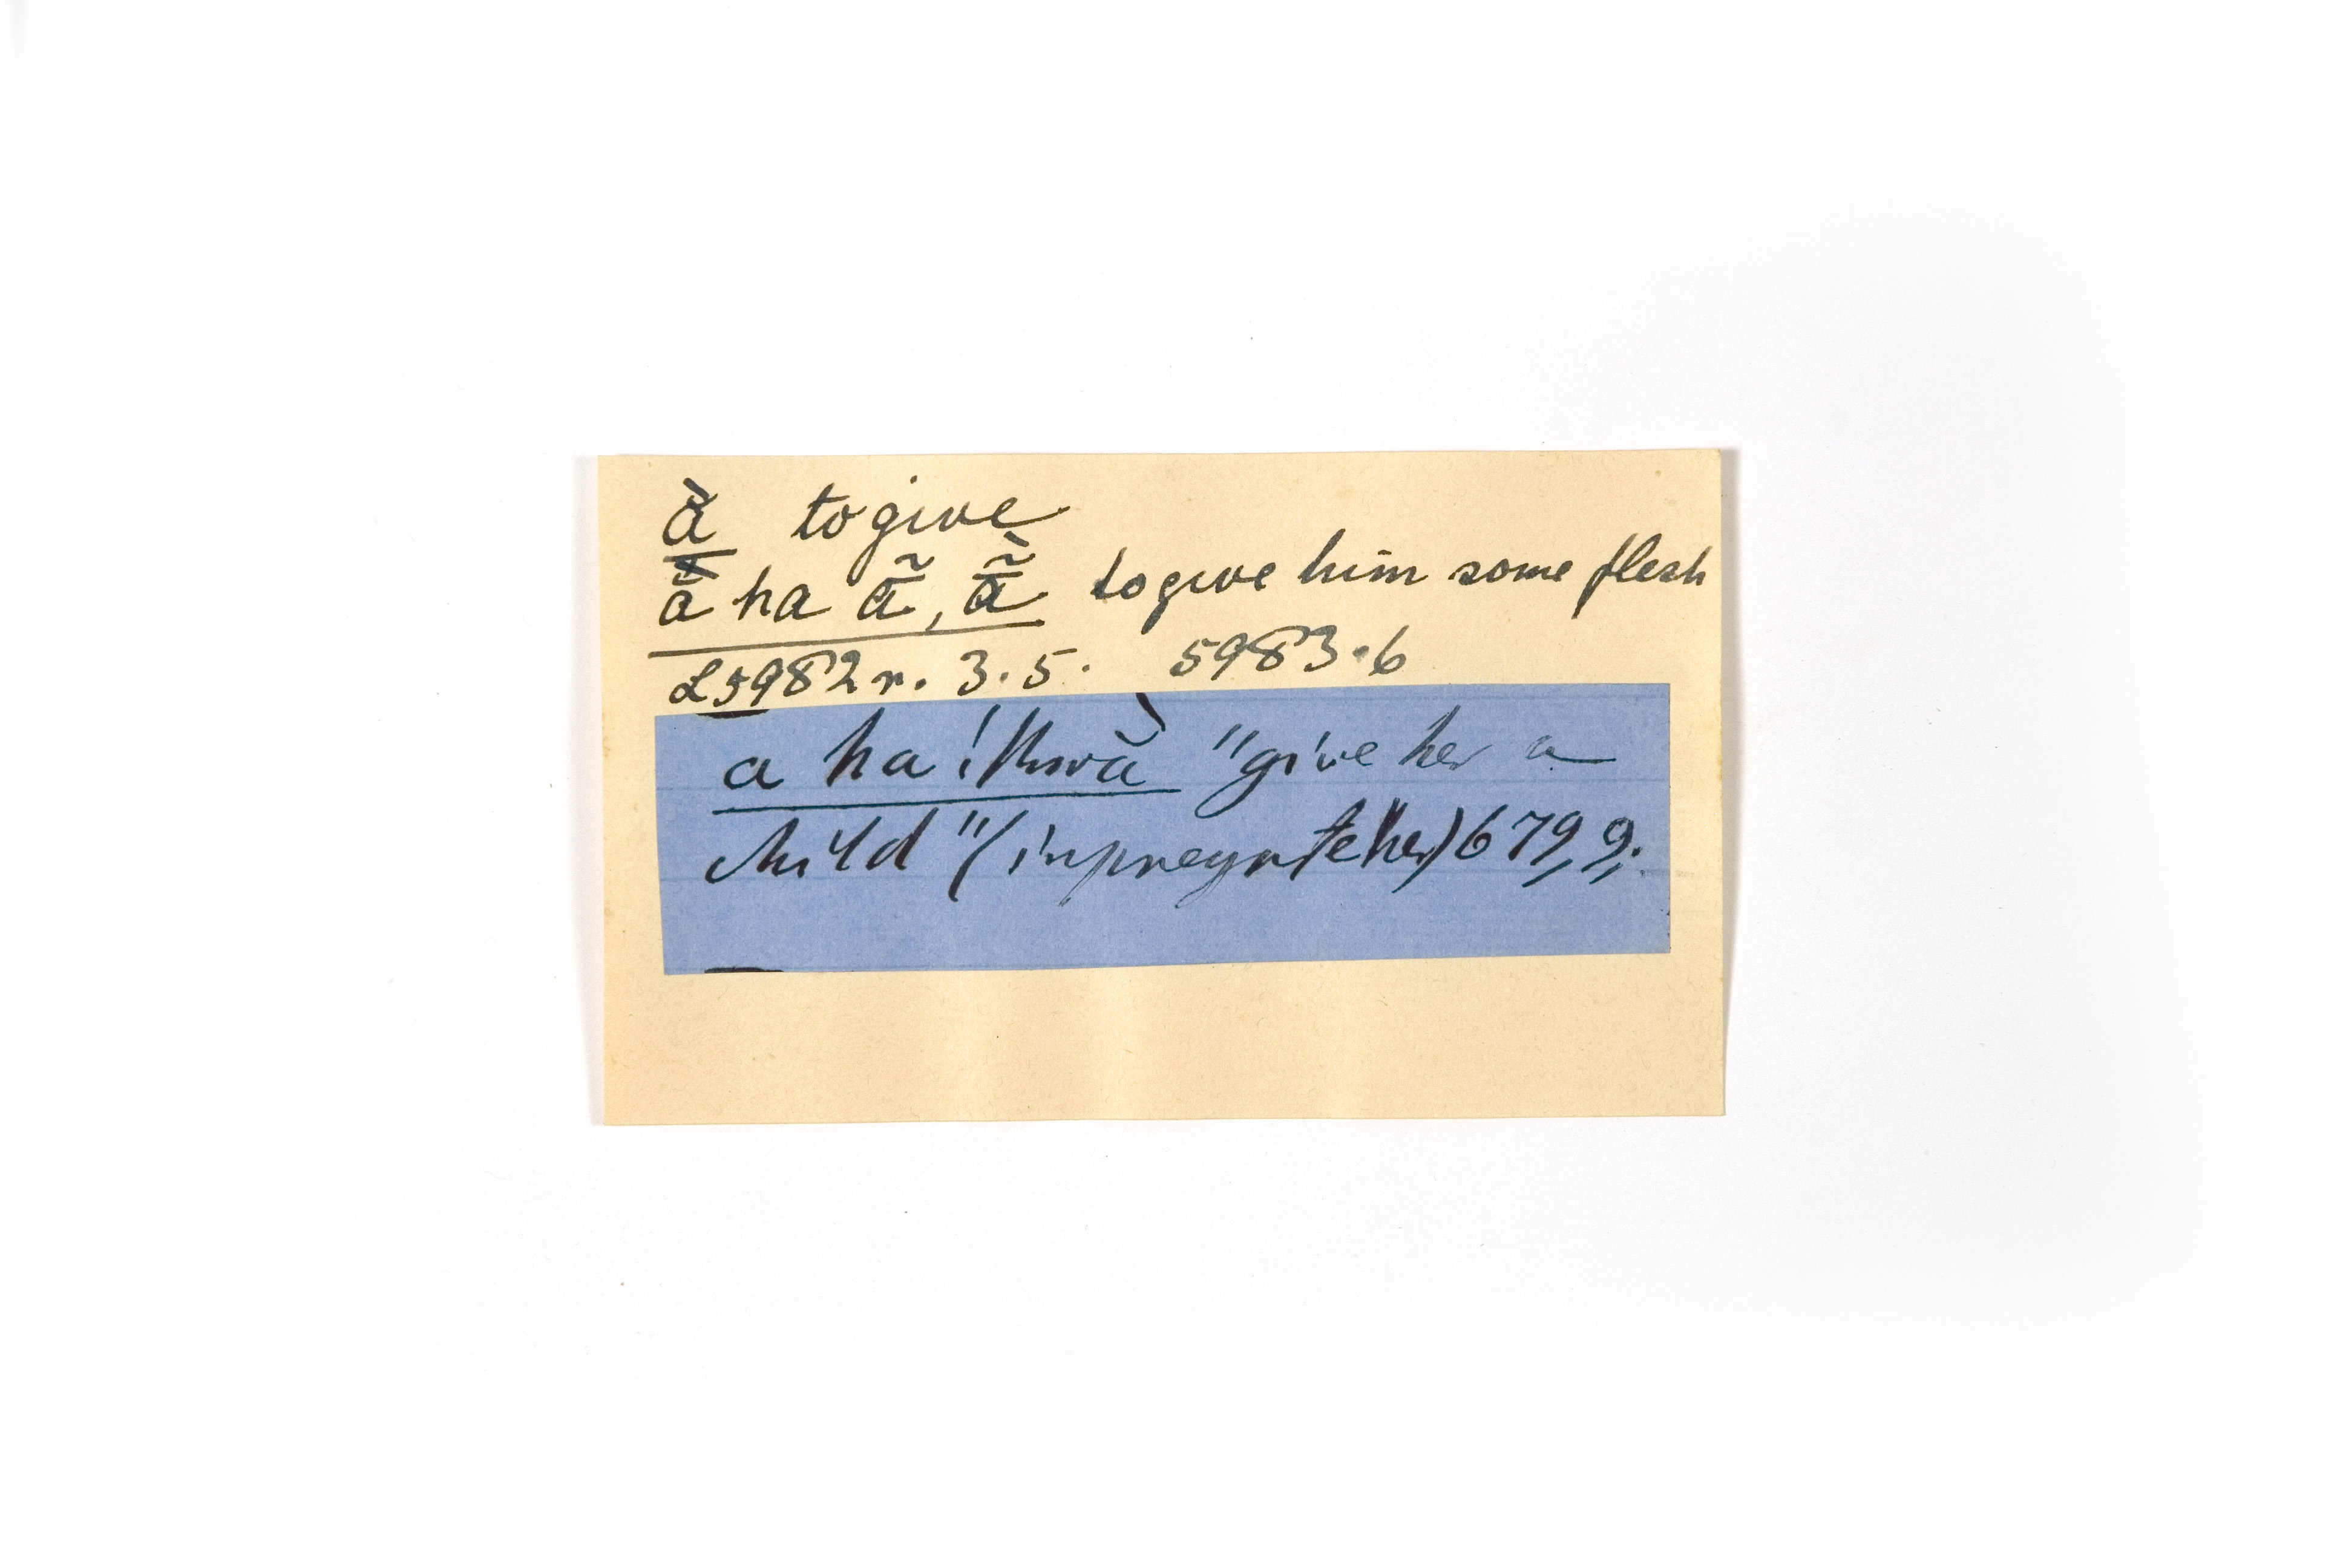 ā̀ to give
ā̀ ha ā̃, ā̃̀ to give him some flesh
L5982 r. 3.5. 5983.6
a ha !khwã̀ "give her a
child" (inpregnte her) 679,9.